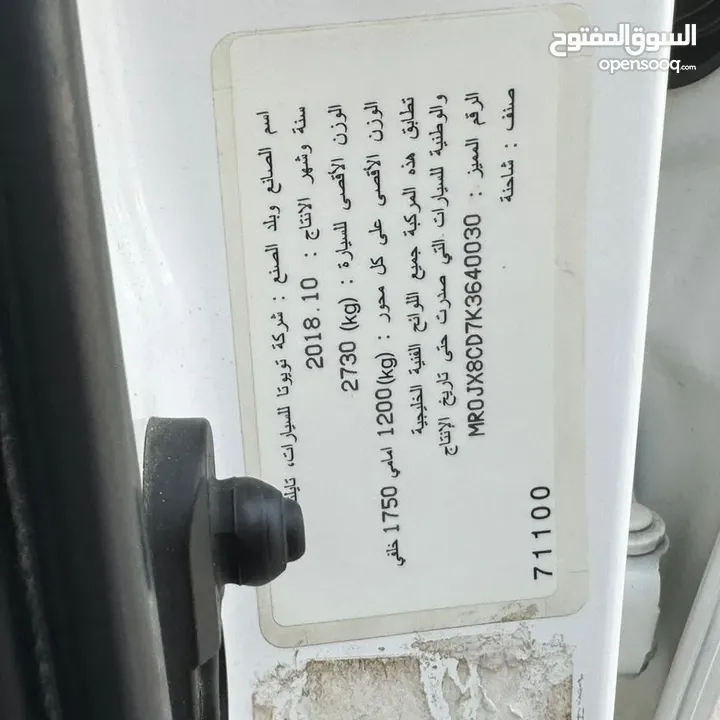 السوق المفتوح
opensooq.com
اسم الصانع وبلد الصنع : شركة تويوتا للسيارات،
سنة وشهر الانتاج : 2018.10
الوزن الأقصى للسيارة : 2730 (kg)
الوزن الأقصى على كل محور : 1200(kg) امامي 1750 خلفي
تطابق هذه المركبة جميع اللوائح الفنية الخليجية
والوطنية للسيارات التي صدرت حتى تاريخ الإنتاج
الرقم المميز : MR0JX8CD7K3640030
صنف : شاحنة
71100